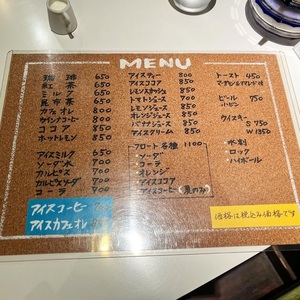 MENU
珈琲 650
紅茶 650
ミルク 650
昆布茶 650
カフェオレ 800
ウインナコーヒー 800
ココア 800
ホットレモン 800
アイスミルク 650
ソーダ水 700
カルピス 700
カルピスソーダ 700
コーラ 700
アイスコーヒー
アイスカフェオレ
アイスティー 800
アイスココア 850
レモンスカッシュ 850
トマトジュース 700
レモンジュース 800
オレンジジュース 800
バナナジュース 800
アイスクリーム 850
フロート各種 1100
・ソーダ
・コーラ
・オレンジ
・アイスココア
・アイスコーヒー(夏のみ)
トースト 450
ビール 750
ウイスキー
S 750
W 1350
・水割
・ロック
・ハイボール
価格は税込み価格です